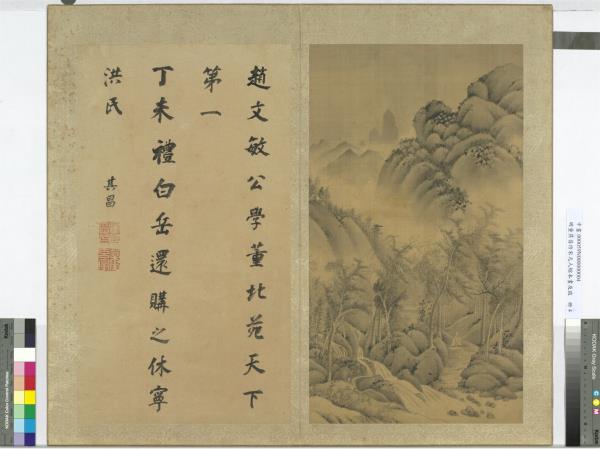 趙文敏公學董北苑天下
第一
丁未禮白岳還購之休寧
洪氏
其昌
KODAK Gray Scale
C
M
Kodak